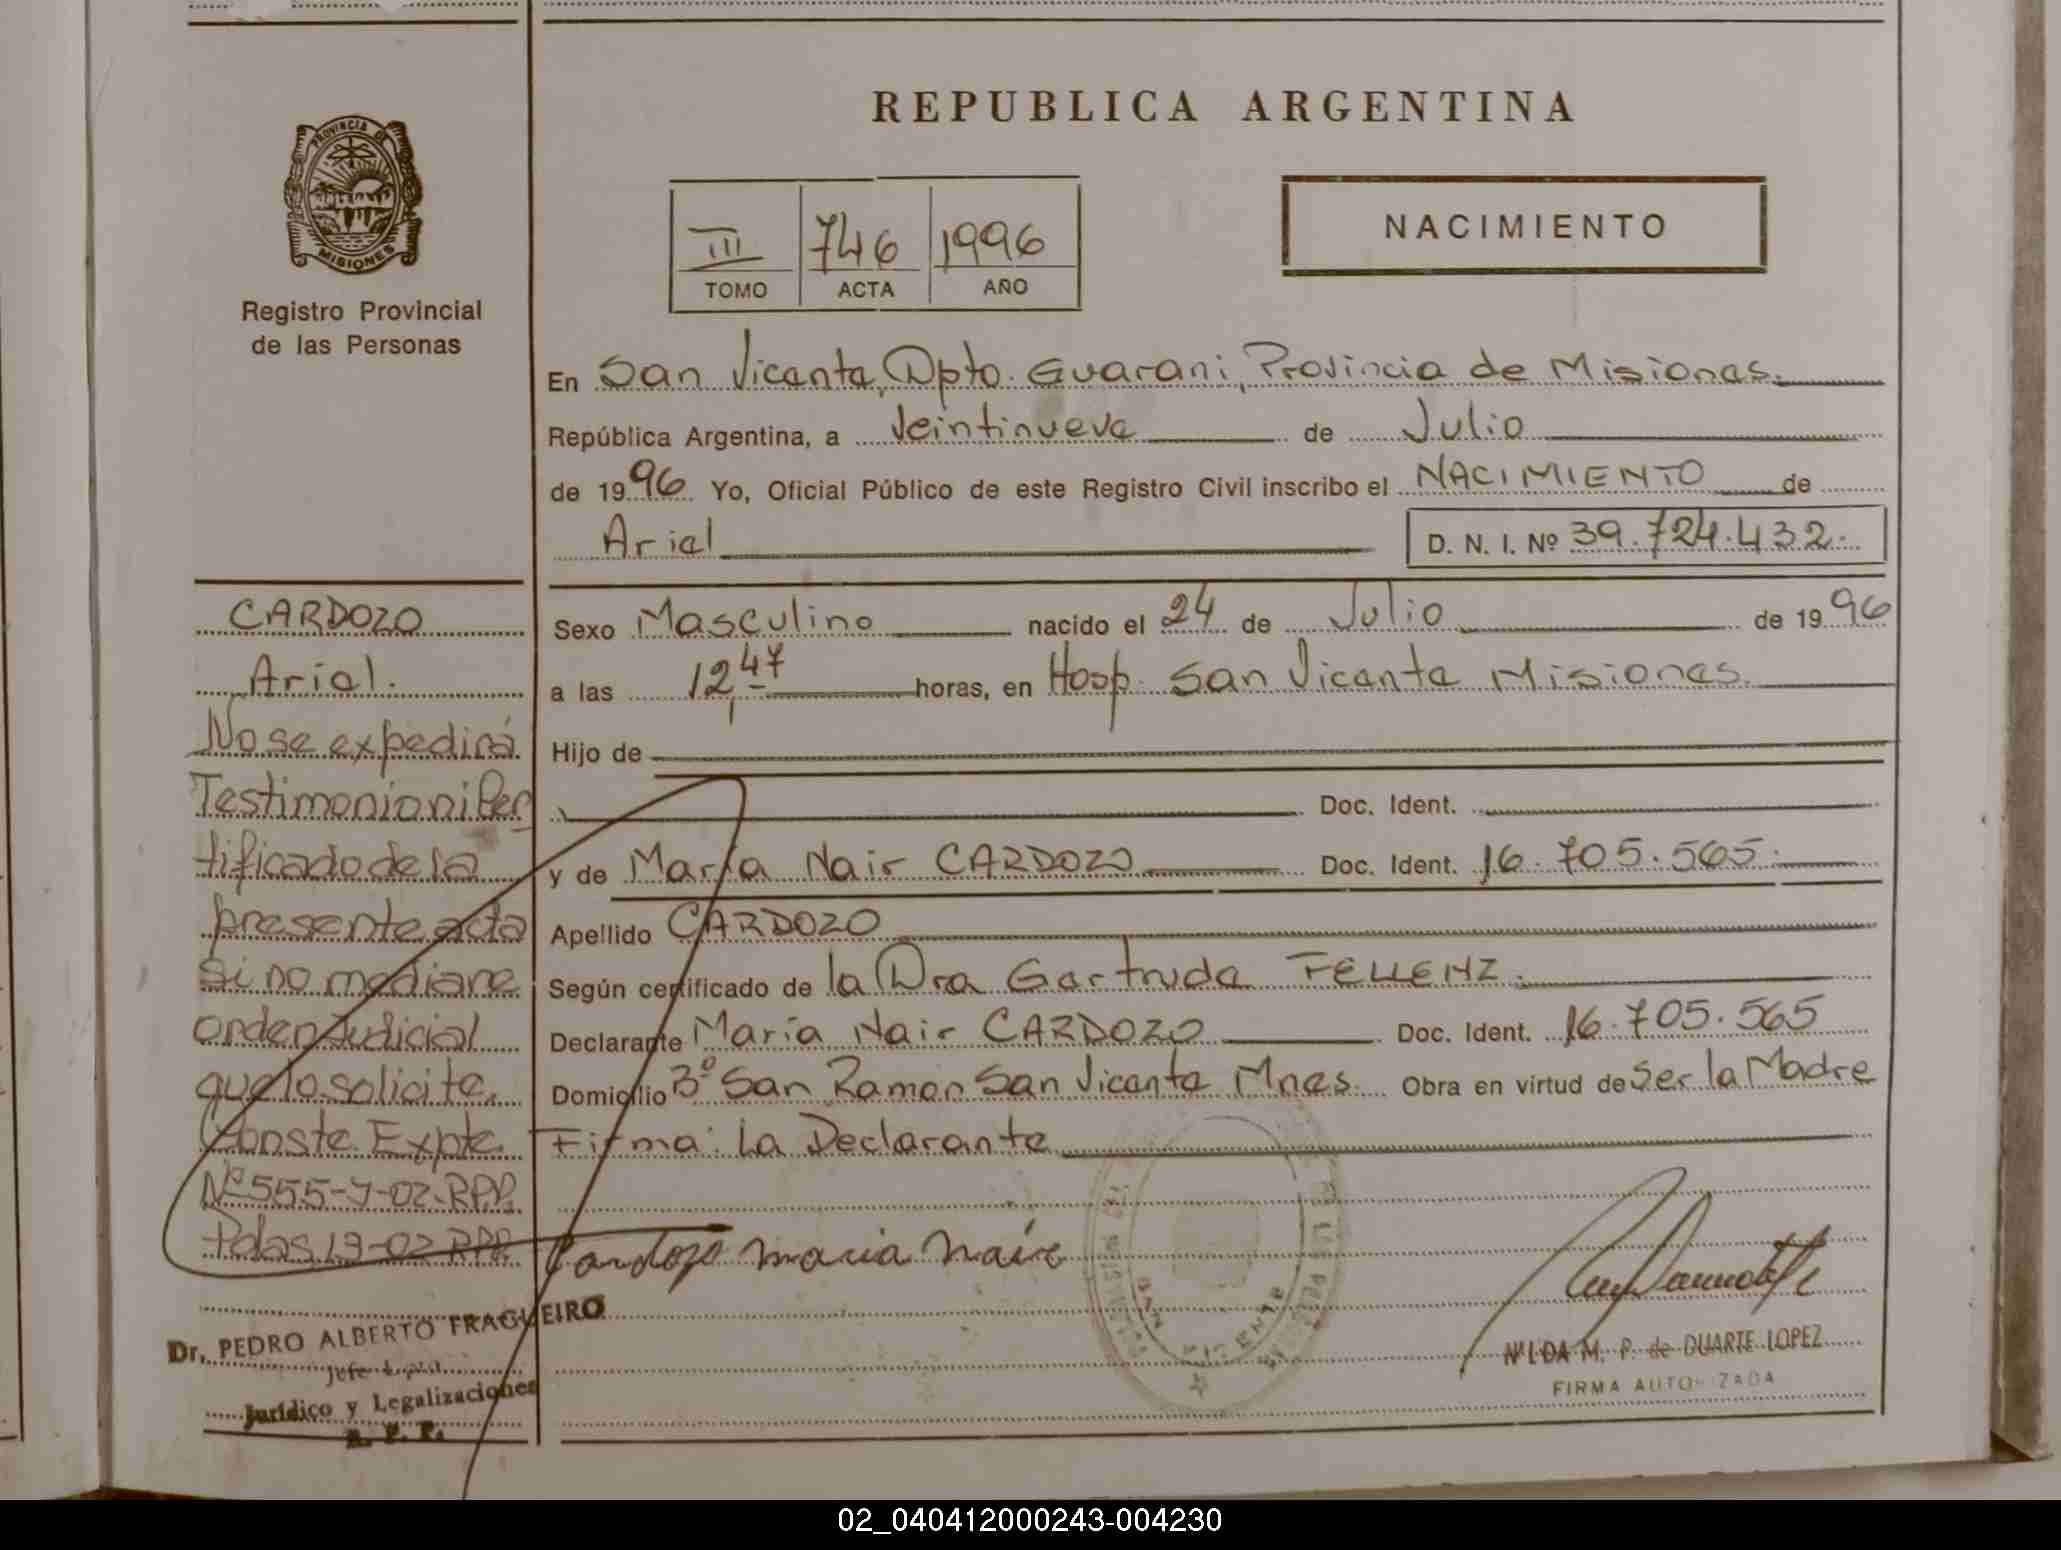 REPUBLICA ARGENTINA
PROVINCIA DE
MISIONES
Registro Provincial
de las Personas
III 746 1996
TOMO ACTA AÑO
NACIMIENTO
En San Vicente, Dpto. Guarani, Provincia de Misiones.
República Argentina, a Veintinueve de Julio
de 1996 Yo, Oficial Público de este Registro Civil inscribo el NACIMIENTO de
Ariel D. N. I. Nº 39.724.432.
CARDOZO
Ariel.
No se expedirá
Testimonio ni Cer
tificado de la
presente acta
si no mediare
orden Judicial
que lo solicite.
Conste. Expte.
Nº 555-J-02-RPP.
Pdas. 19-02 RPP.
Dr. PEDRO ALBERTO FRAGUEIRO
Jefe
Jurídico y Legalizaciones
R. P. P.
Sexo Masculino nacido el 24 de Julio de 1996
a las 12,47 horas, en Hosp. San Vicente Misiones.
Hijo de
Doc. Ident.
y de María Nair CARDOZO Doc. Ident. 16.705.565.
Apellido CARDOZO
Según certificado de la Dra Gertrude FELLENZ.
Declarante María Nair CARDOZO Doc. Ident. 16.705.565
Domicilio Bº San Ramon San Vicente Mnes. Obra en virtud de Ser la Madre
Firma: La Declarante
Cardozo maria Nair
NILDA M. P. de DUARTE LOPEZ
FIRMA AUTORIZADA
02_040412000243-004230